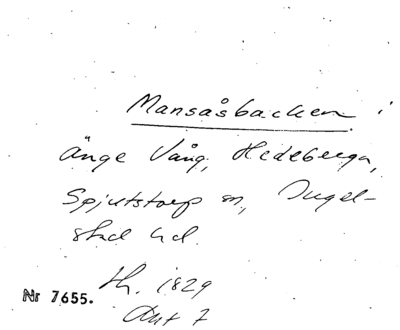 Mansåsbacken i
Änge Vång, Hedeberga,
Spjutstorp sn, Ingel-
stad hd.
th. 1829
Nr 7655.
Akt 7